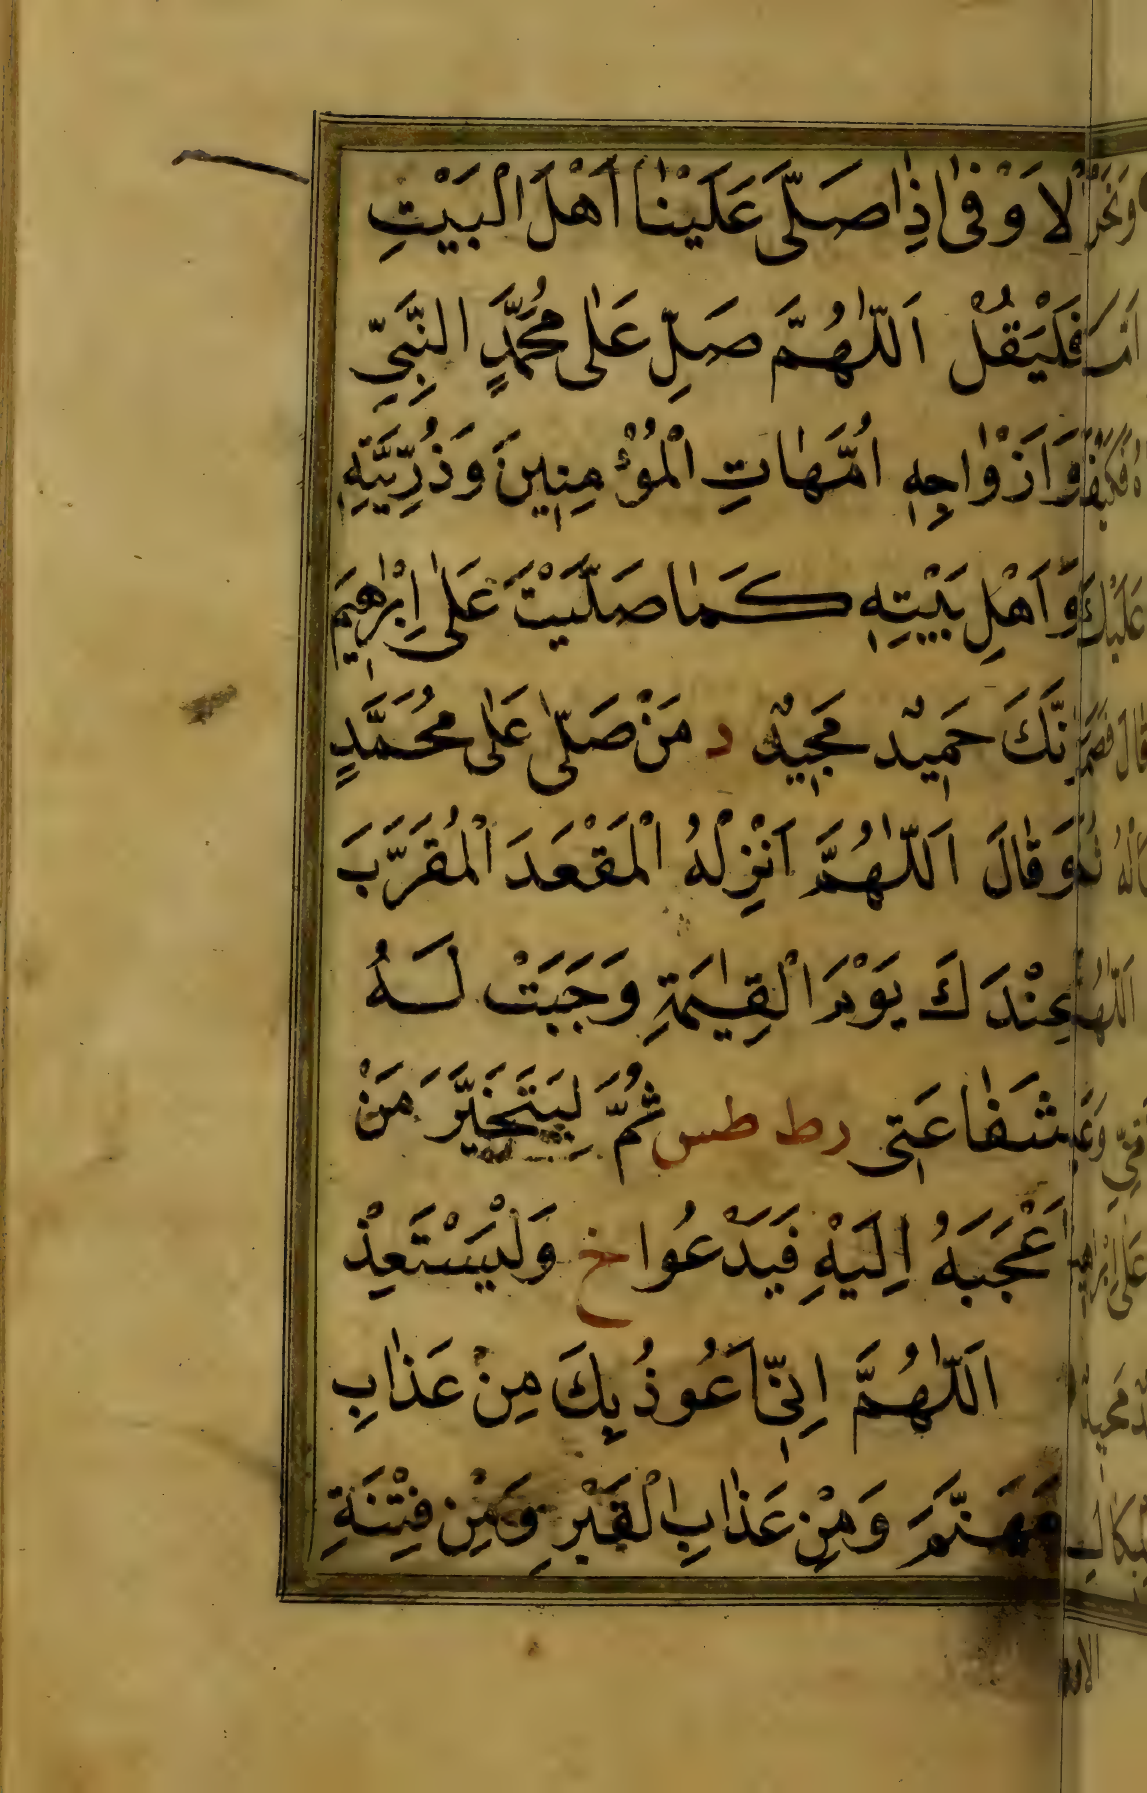 لَاَوْفٰى اِذٰا صَلّٰى عَلَيْنٰا اَهْلَ الْبَيْتِ
فَلْيَقُلْ اَللّٰهُمَّ صَلِّ عَلٰى مُحَمَّدٍ النَّبِيِّ
وَاَزْوٰاجِهِ اُمَّهٰاتِ الْمُؤْمِنِينَ وَذُرِّيَّتِهِ
وَاَهْلِ بَيْتِهِ كَمٰا صَلَّيْتَ عَلٰى اِبْرٰهِيمَ
اِنَّكَ حَمِيدٌ مَجِيدٌ د مَنْ صَلّٰى عَلٰى مُحَمَّدٍ
وَقٰالَ اَللّٰهُمَّ اَنْزِلْهُ الْمَقْعَدَ الْمُقَرَّبَ
عِنْدَكَ يَوْمَ الْقِيٰمَةِ وَجَبَتْ لَهُ
شَفٰاعَتِى ر ط طس ثُمَّ لِيَتَخَيَّرَ مَنْ
اَعْجَبَهُ اِلَيْهِ فَيَدْعُوا خ وَلْيَسْتَعِذْ
اَللّٰهُمَّ اِنِّى اَعُوذُ بِكَ مِنْ عَذٰابِ
جَهَنَّمَ وَمِنْ عَذٰابِ الْقَبْرِ وَمِنْ فِتْنَةِ